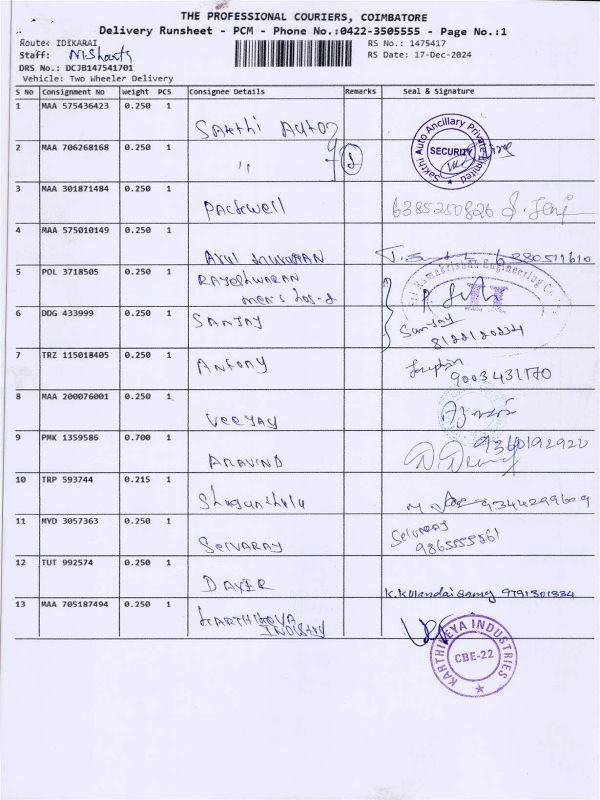 THE PROFESSIONAL COURIERS, COIMBATORE
Delivery Runsheet - PCM - Phone No.:0422-3505555 - Page No.:1
Route: IDIKARAI
RS No.: 1475417
Staff: Nishanth
RS Date: 17-Dec-2024
DRS No.: DCJB147541701
Vehicle: Two Wheeler Delivery
S No Consignment No Weight PCS Consignee Details Remarks Seal & Signature
1 MAA 575436423 0.250 1 Sakthi Auto
Sakthi Auto Ancillary Private Limited
SECURITY
2 MAA 706268168 0.250 1 "
3 MAA 301871484 0.250 1 Packwell 6385250826
4 MAA 575010149 0.250 1 6380511610
5 POL 3718505 0.250 1 Rajeshwaran
men's hos-2
Sri Ramakrishna Engineering
6 DDG 433999 0.250 1 Sanjay Sanjay
8122120234
7 TRZ 115018405 0.250 1 Antony
9003431770
8 MAA 200076001 0.250 1 Veejay
9 PMK 1359586 0.700 1 Aravind 9360192920
10 TRP 593744 0.215 1 9344299609
11 MYD 3057363 0.250 1 Selvaraj Selvaraj
9865555861
12 TUT 992574 0.250 1 K.Kulandaisamy 9791301334
13 MAA 705187494 0.250 1 Karthikeya
Industry
KARTHIKEYA INDUSTRIES
CBE-22